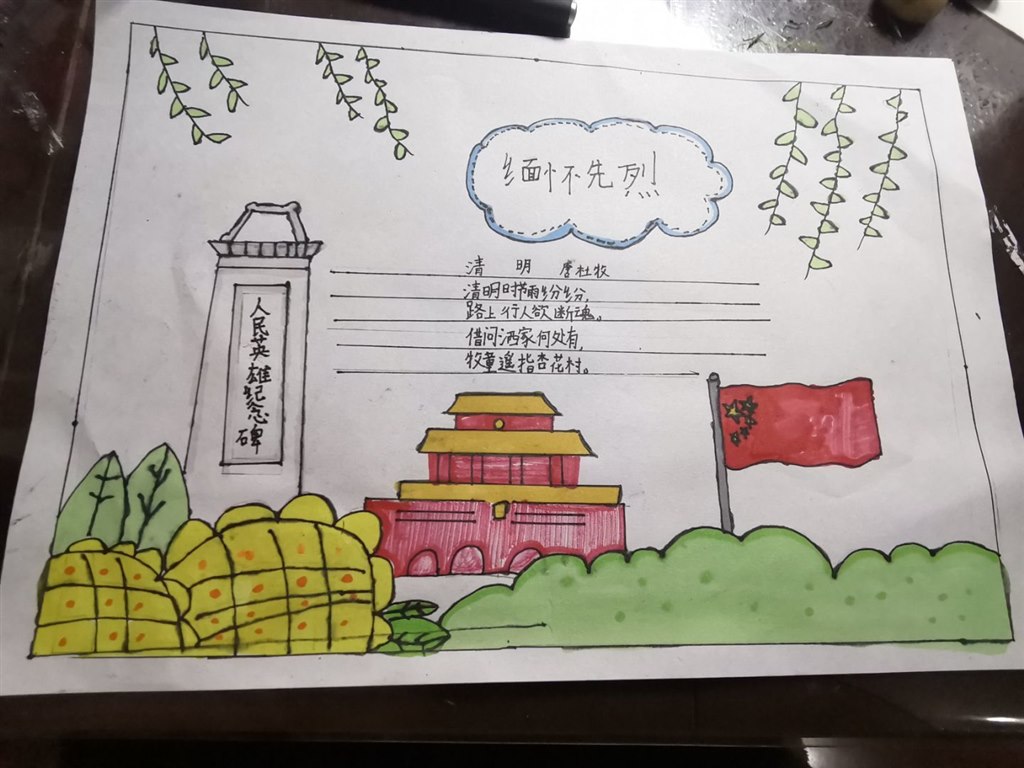 缅怀先烈
清 明 唐杜牧
清明时节雨纷纷,
路上行人欲断魂。
借问洒家何处有,
牧童遥指杏花村。
人民英雄纪念碑